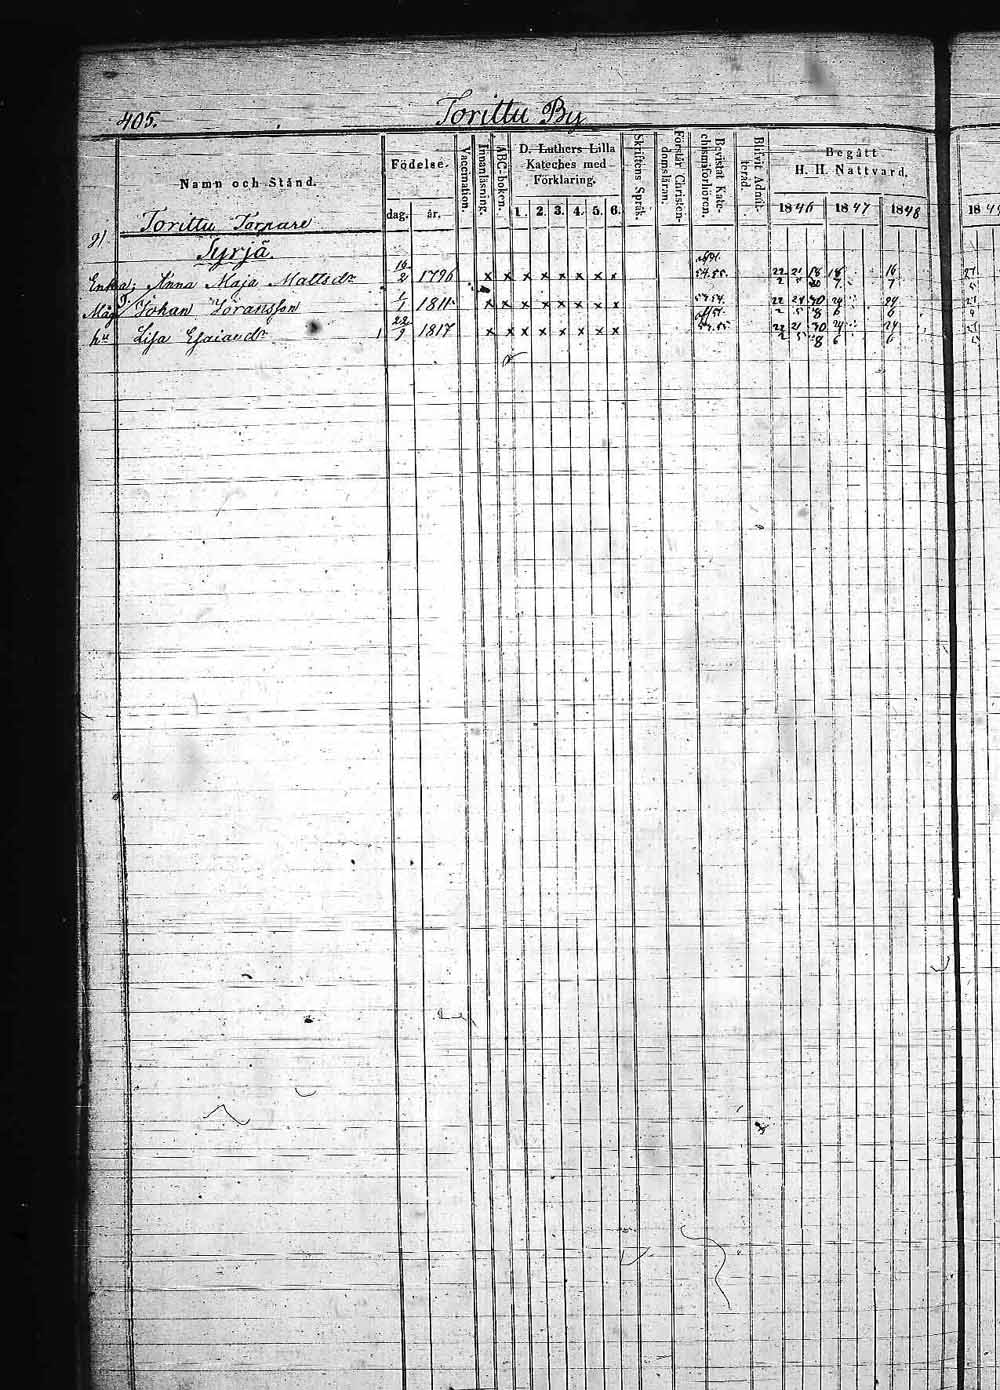 405. Torittu By
Namn och Stånd.
Födelse.
dag. år.
Vaccination.
Innanläsning.
ABC-boken.
D. Luthers Lilla
Kateches med
Förklaring.
1. 2. 3. 4. 5. 6.
Skriftens Språk.
Förstår Christen-
domsläran.
Bevistat Kate-
chismiförhören.
Blifvit Admit-
terad.
Begått
H. H. Nattvard.
1846 1847 1848
Torittu Torpare
Syrjä
Enka, Anna Maja Mattsdr 16/2 1796 x x x x x x x x
Måg Johan Göransson 1/1 1811 x x x x x x x x
hu Lisa Esaiasdr 22/9 1817 x x x x x x x x